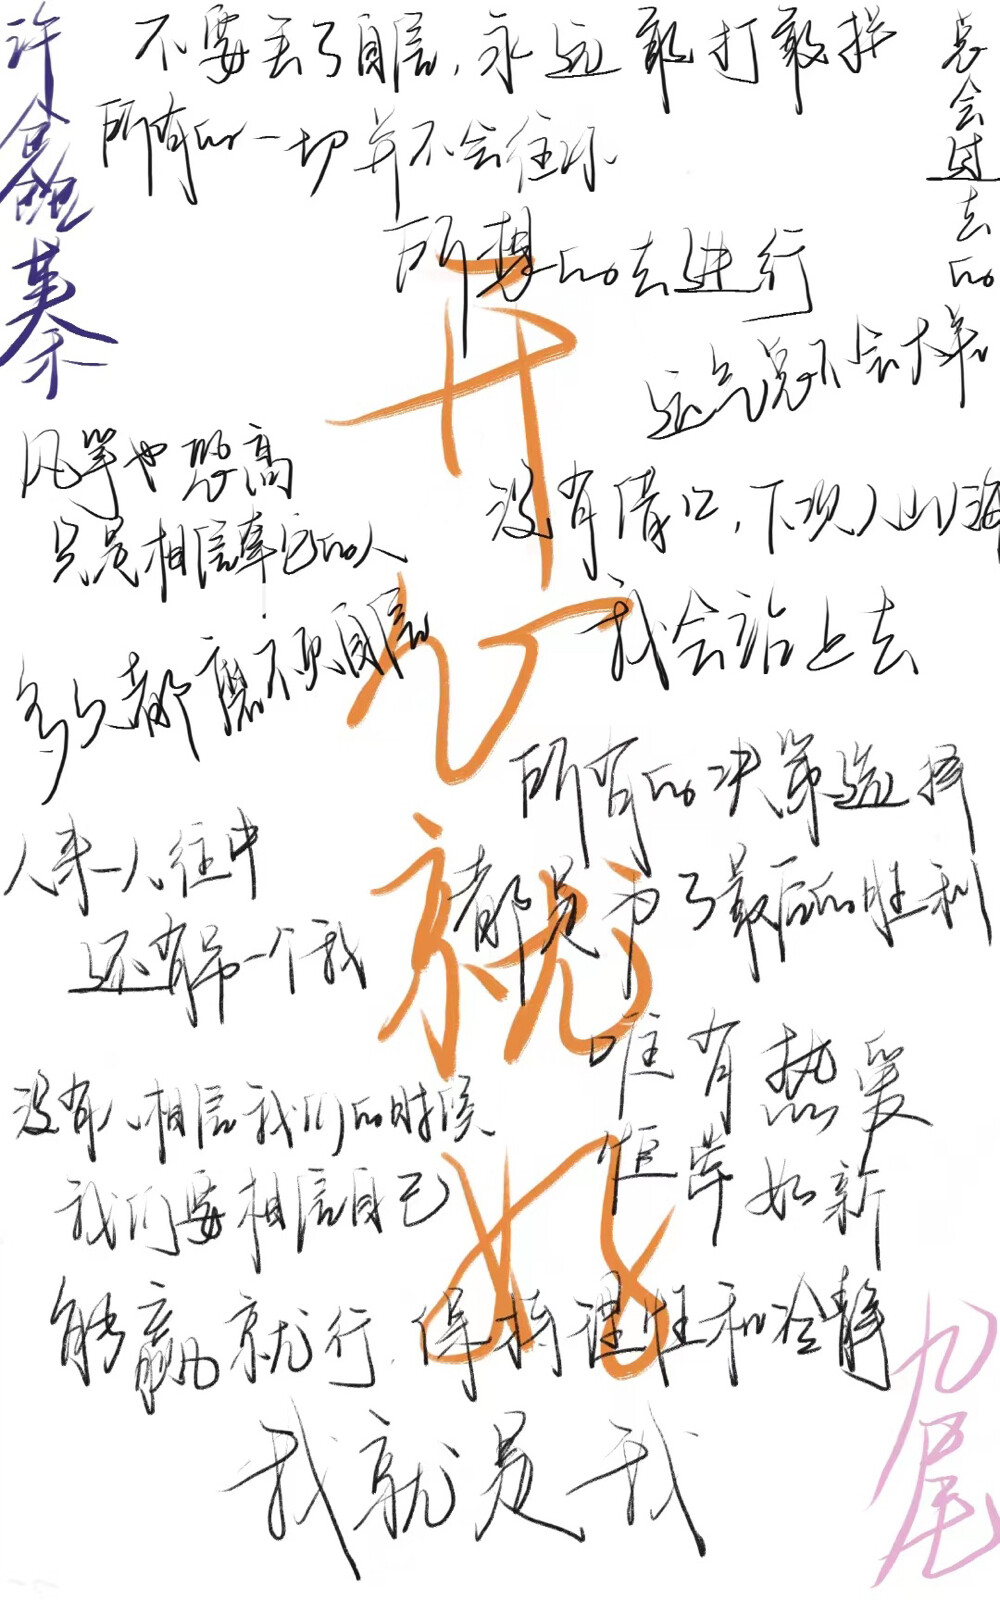 许鑫蓁
不要丢了自信，永远敢打敢拼
所有的一切并不会往你
所想的去进行
总会过去的
运气总不会太差
开心就好
风筝也恐高
只是相信牵它的人
没有借口，下次人山人海
我会站上去
多久都磨不灭自信
所有的决策选择
都是为了最后的胜利
人来人往中
还有另一个我
唯有热爱
恒常如新
没有人相信我们的时候
我们要相信自己
能赢就行，保持理性和冷静
我就是我
九尾